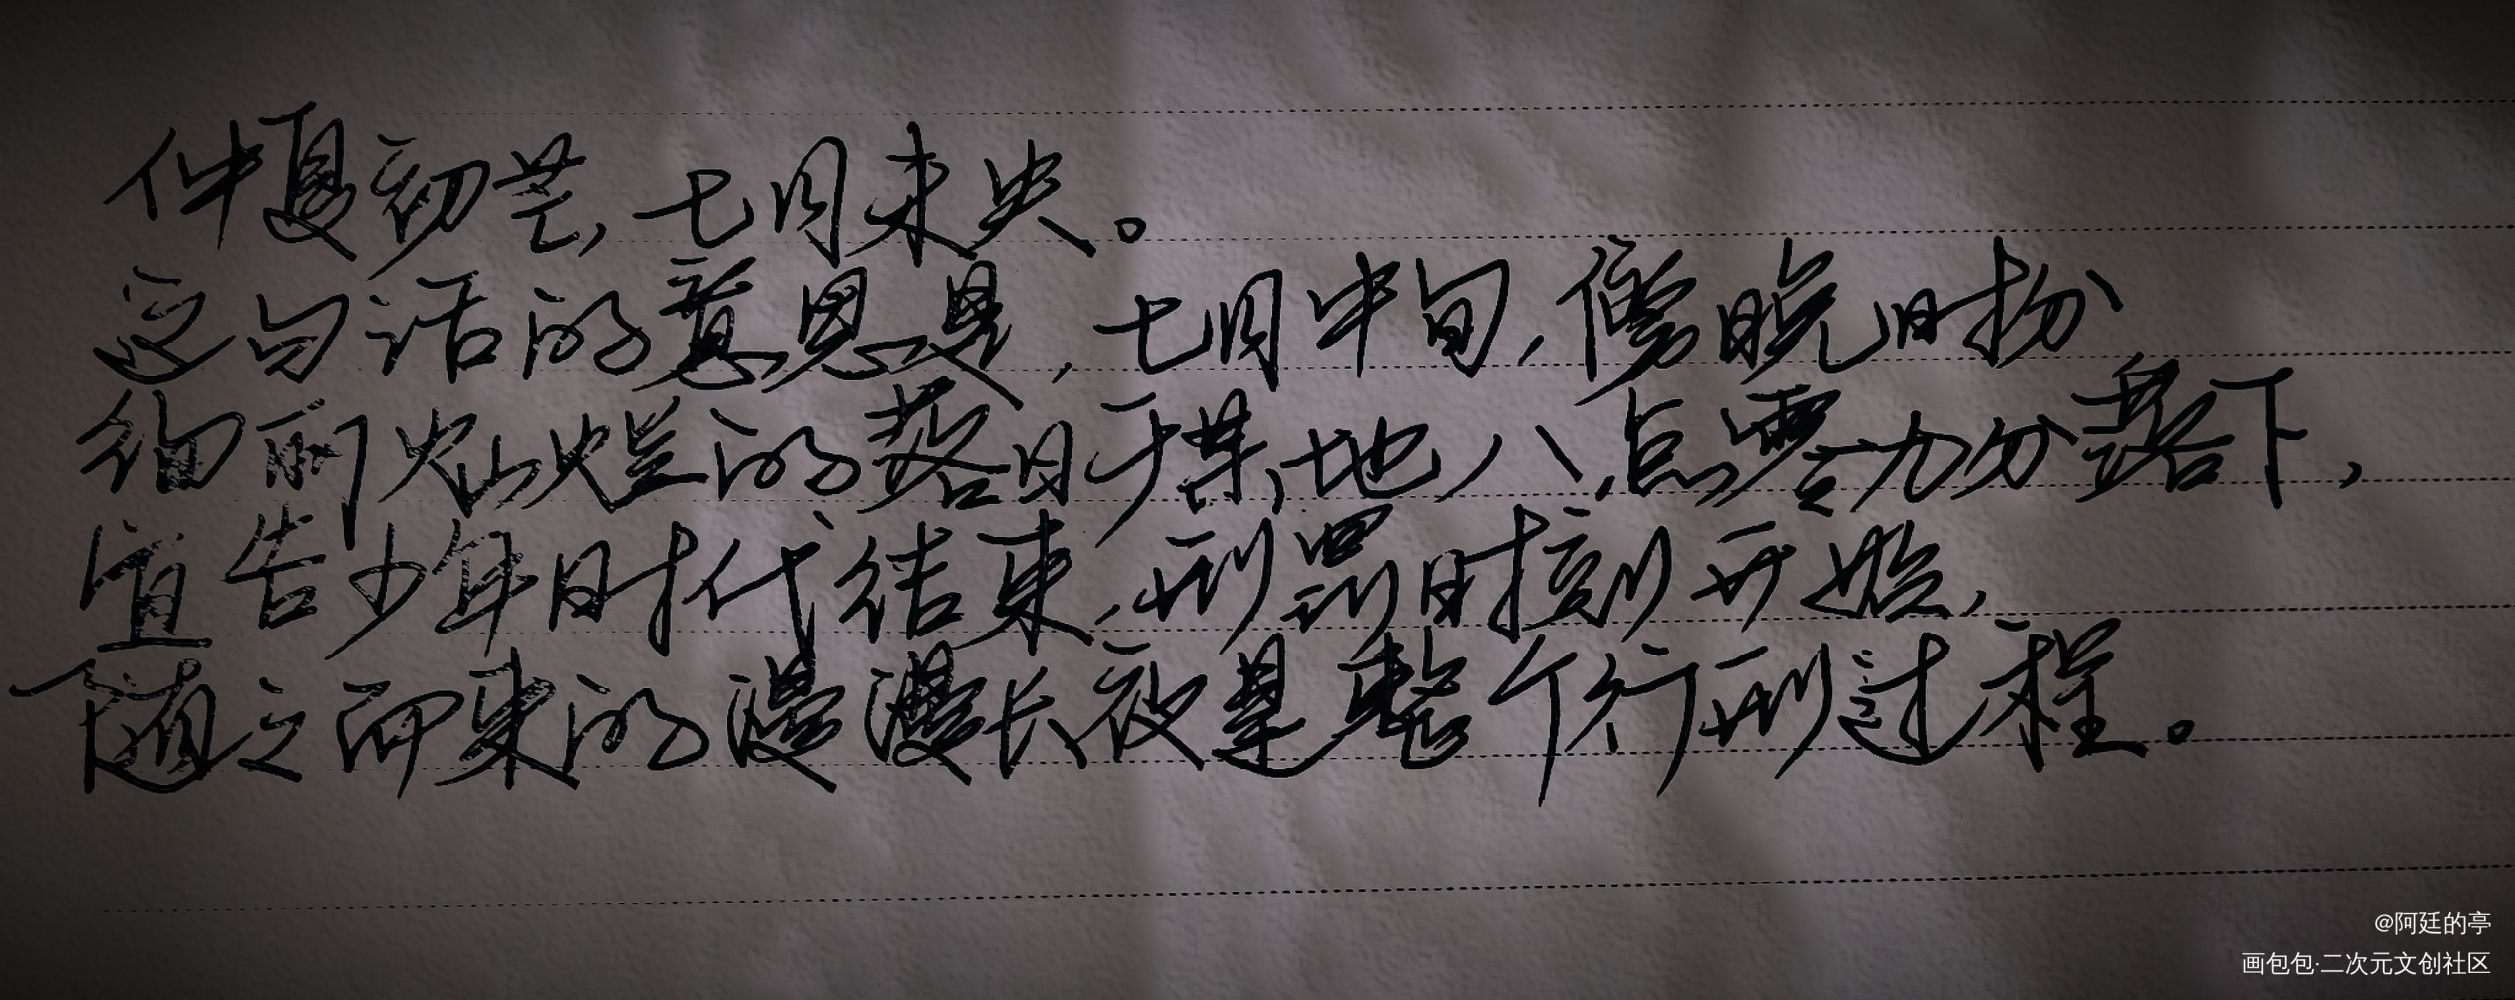 仲夏初芒,七月未央。
这句话的意思是,七月中旬,傍晚时分
绚丽灿烂的落日于某地八点零九分落下,
宣告少年时代结束,刑罚时刻开始,
随之而来的漫漫长夜是整个行刑过程。
@阿廷的亭
画包包·二次元文创社区